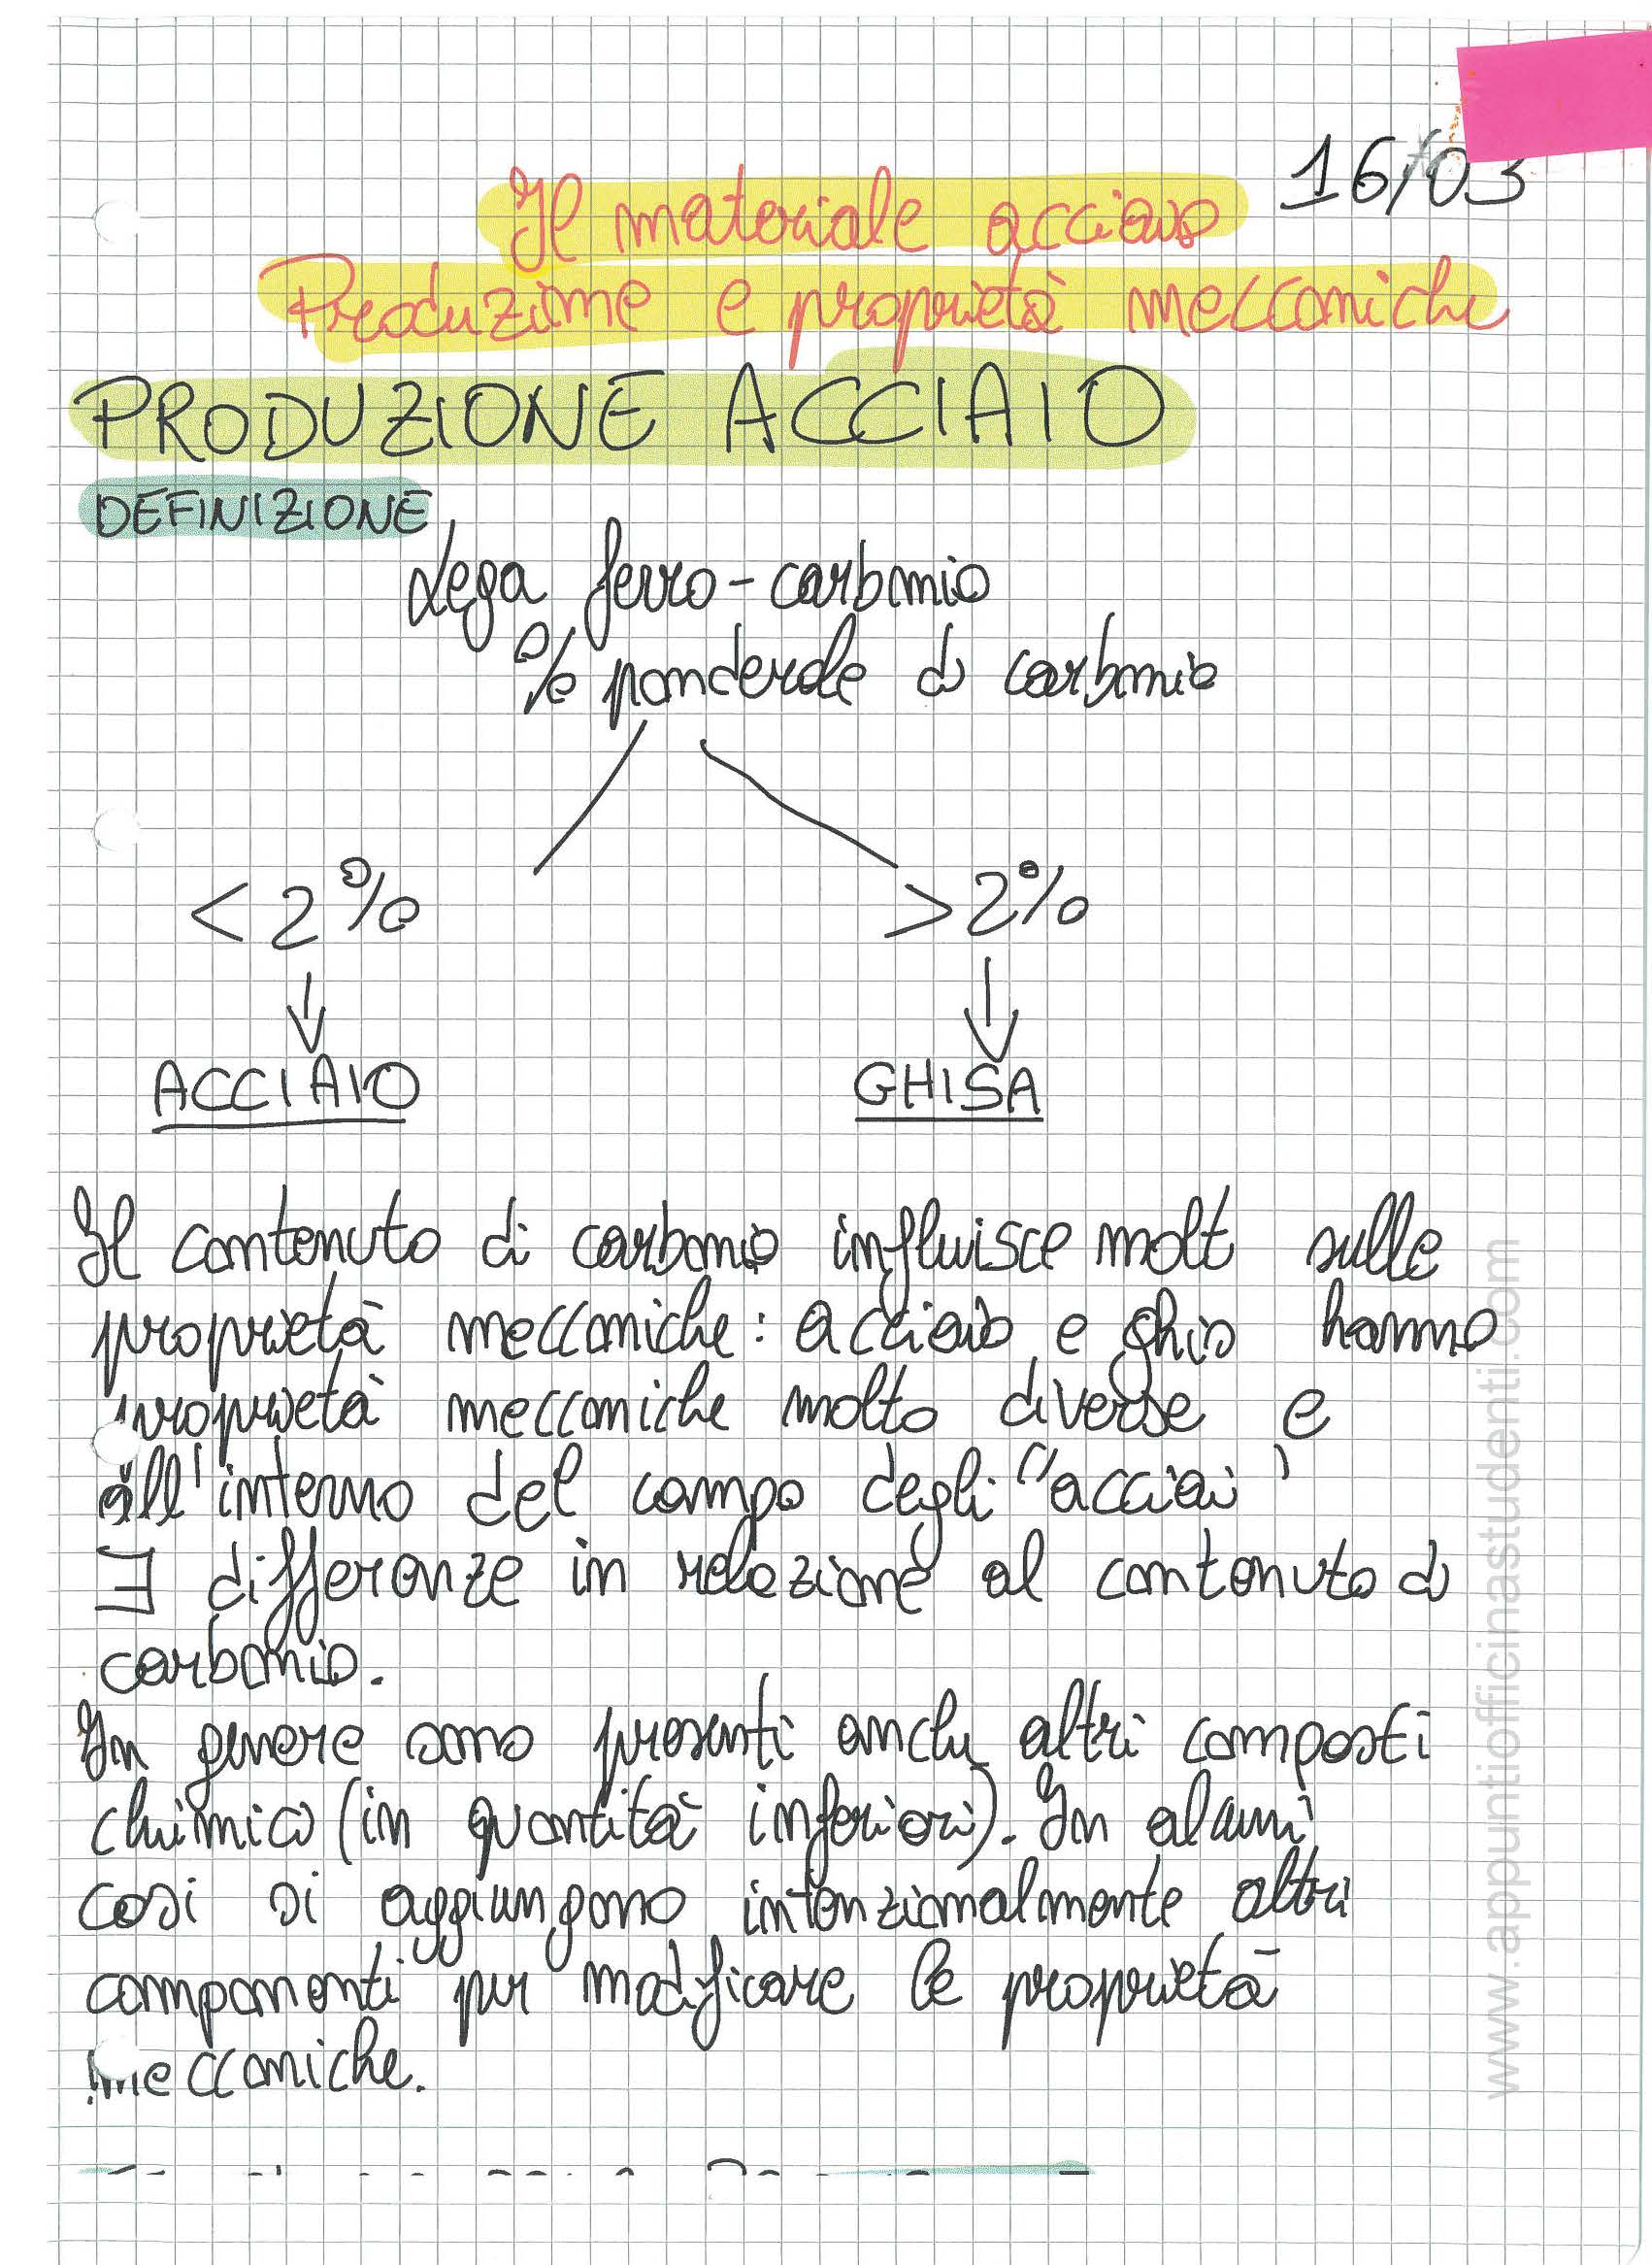 16/03
Il materiale acciaio
Produzione e proprietà meccaniche
PRODUZIONE ACCIAIO
DEFINIZIONE
Lega ferro-carbonio
% ponderale di carbonio
< 2% > 2%
ACCIAIO GHISA
Il contenuto di carbonio influisce molt sulle
proprietà meccaniche: acciaio e ghisa hanno
proprietà meccaniche molto diverse e
all'interno del campo degli "acciai"
∃ differenze in relazione al contenuto di
carbonio.
In genere sono presenti anche altri composti
chimici (in quantità inferiori). In alcuni
casi si aggiungono intenzionalmente altri
componenti per modificare le proprietà
meccaniche.
www.appuntiofficinastudenti.com